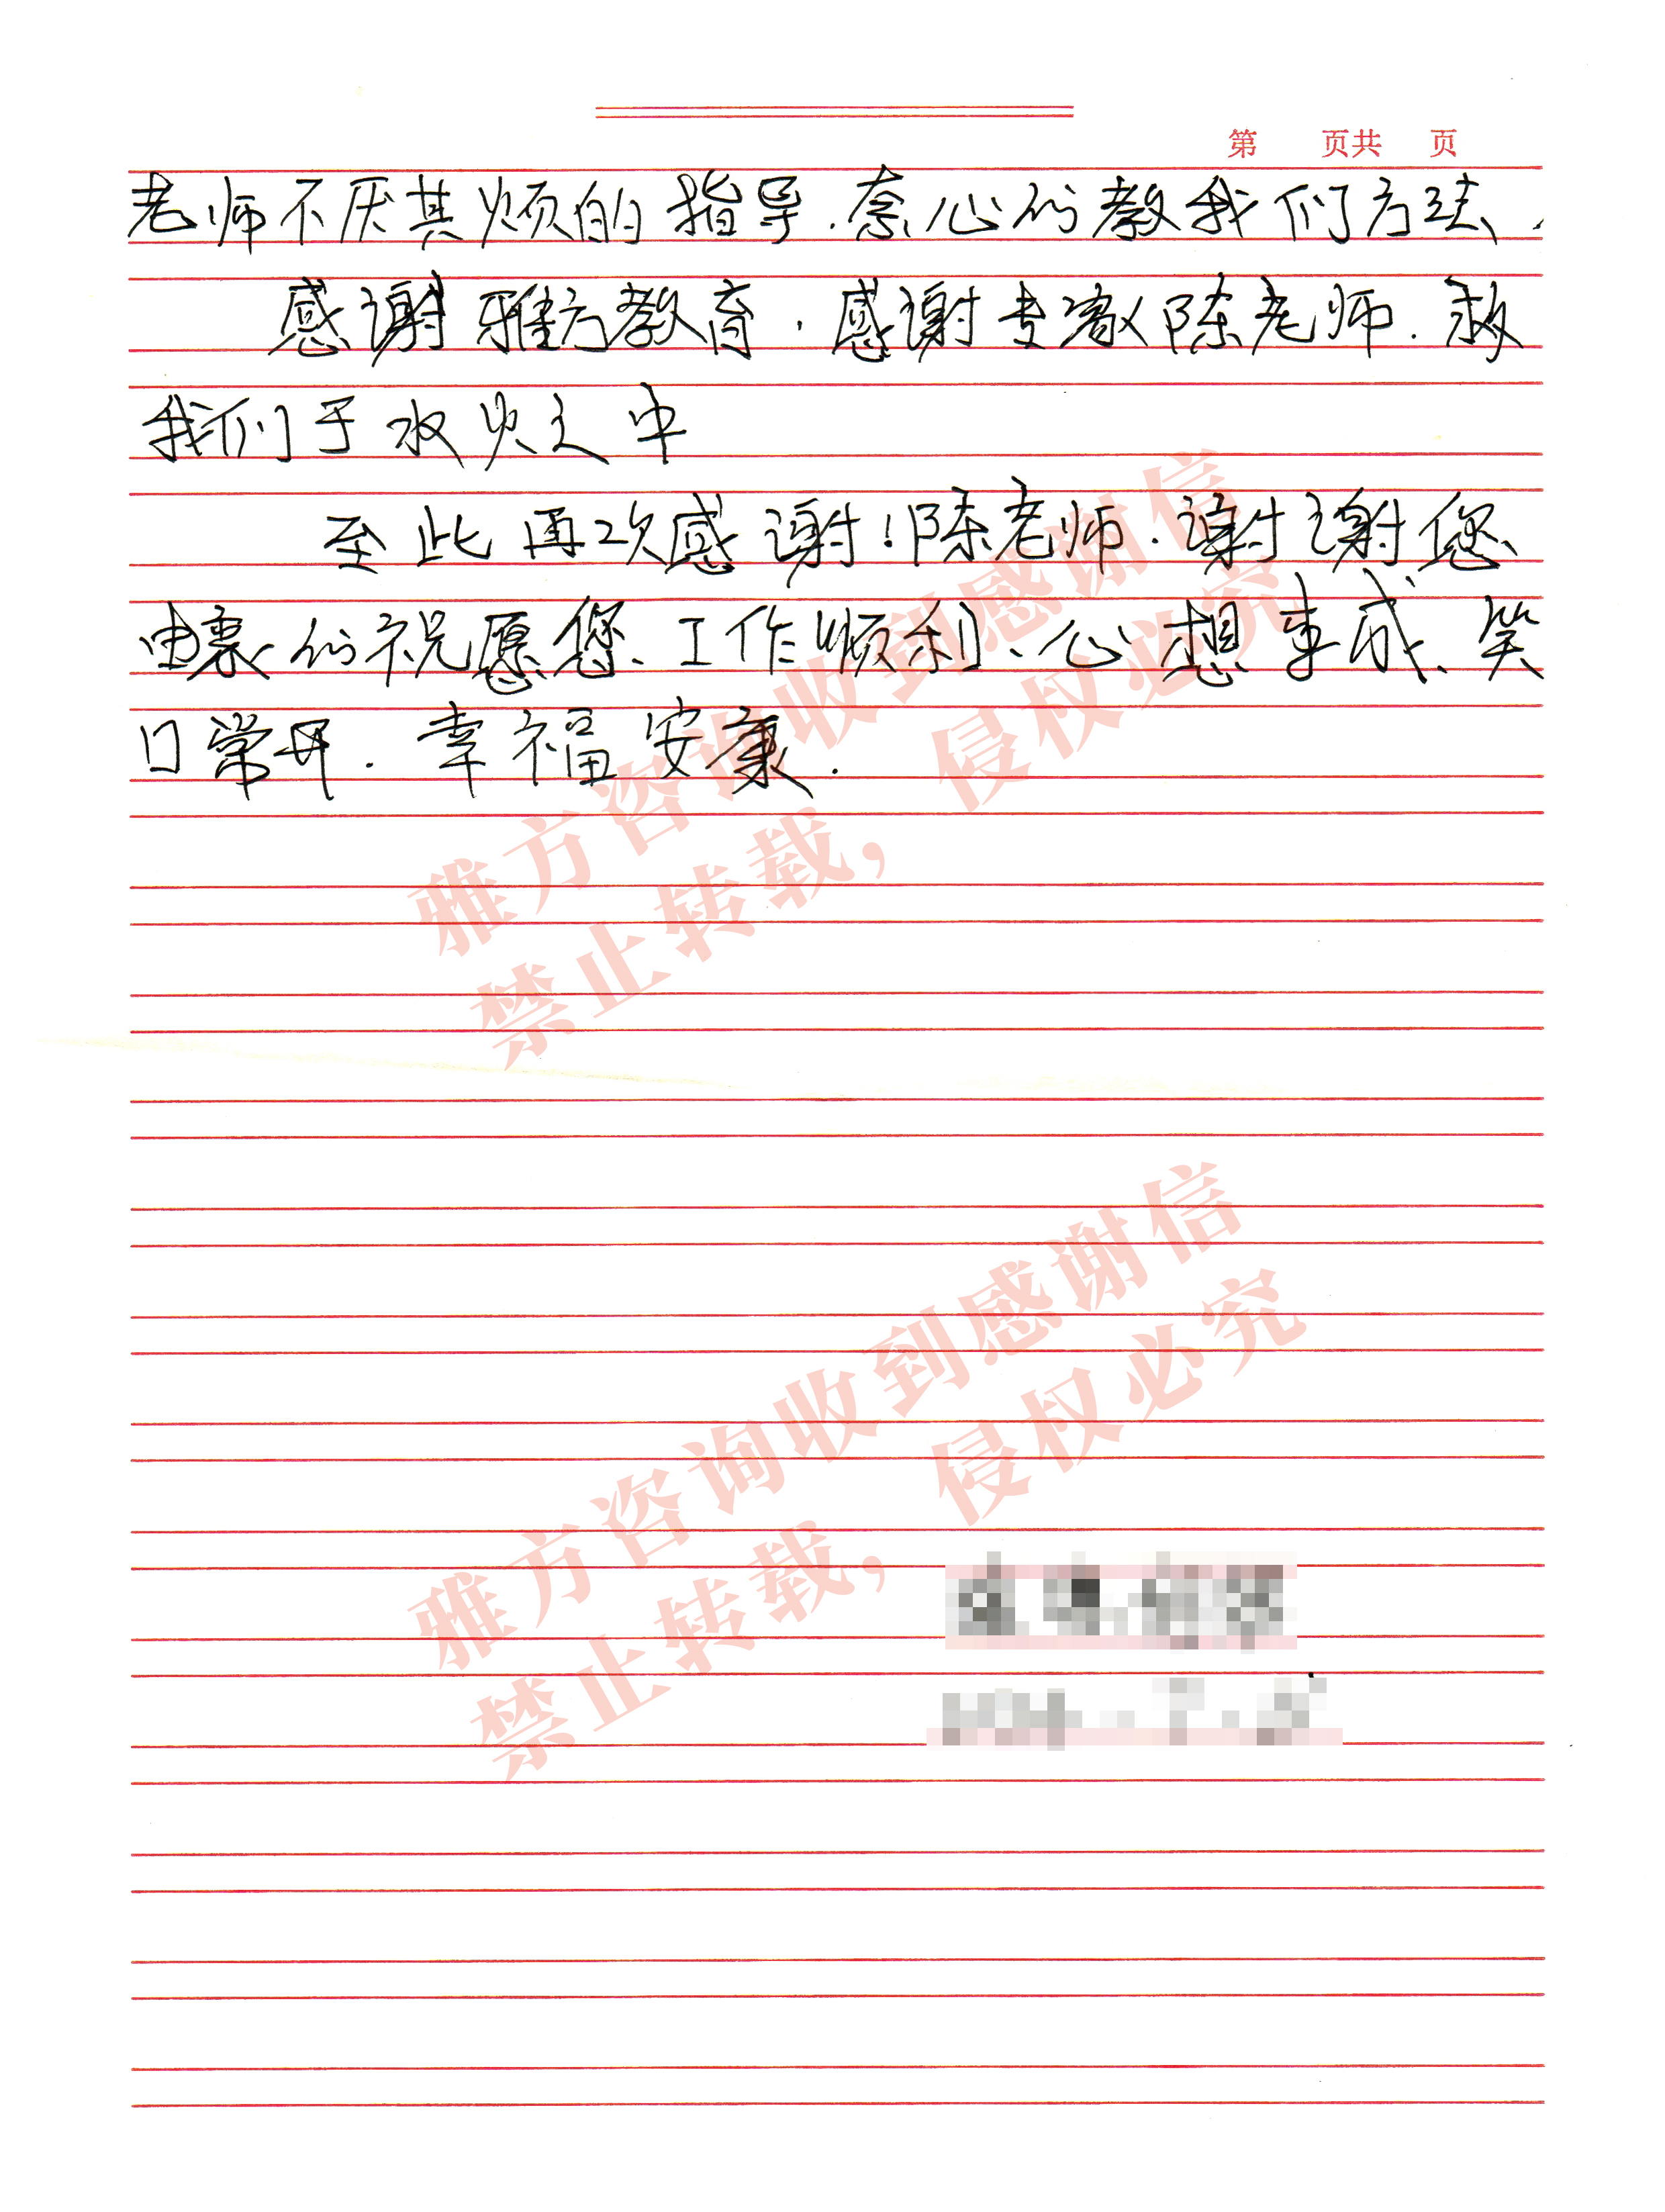 第 页共 页
老师不厌其烦的指导.奈心的教我们方法.
感谢雅方教育.感谢专家陈老师.救
我们于水火之中
至此再次感谢!陈老师.谢谢您
由衷的祝愿您、工作顺利、心想事成、笑
口常开.幸福安康.
雅方咨询收到感谢信
禁止转载，侵权必究
雅方咨询收到感谢信
禁止转载，侵权必究